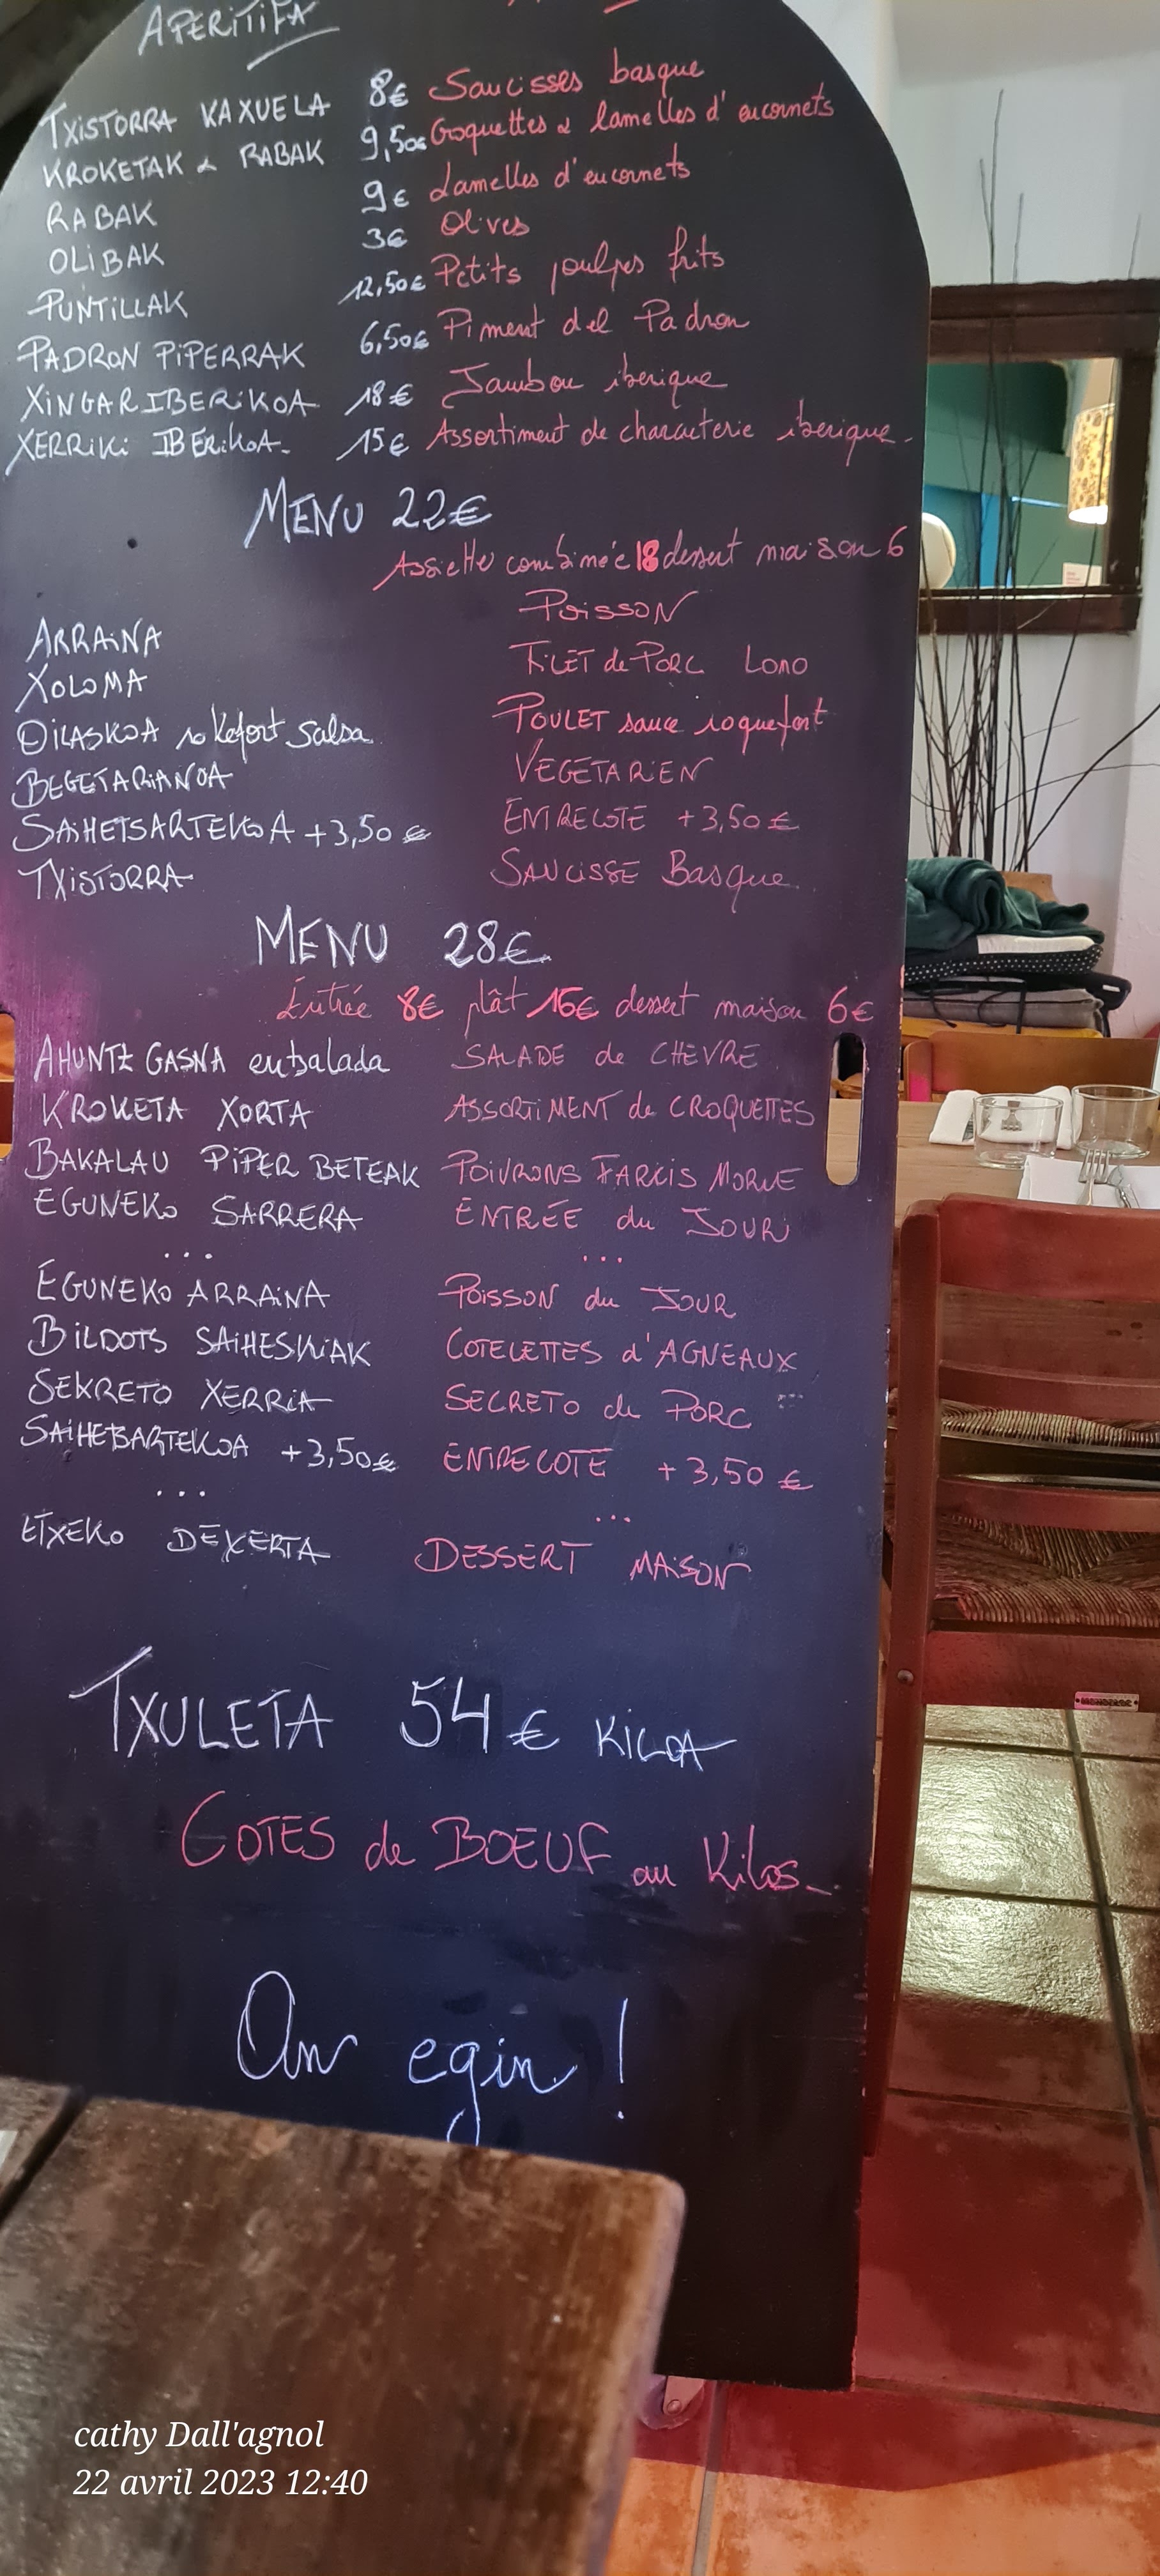 APERITIFA
TXISTORRA KAXUELA 8€ Saucisses basque
KROKETAK & RABAK 9,50€ Croquettes & lamelles d'encornets
RABAK 9€ Lamelles d'encornets
OLIBAK 3€ Olives
PUNTILLAK 12,50€ Petits poulpes frits
PADRON PIPERRAK 6,50€ Piment del Padron
XINGAR IBERIKOA 18€ Jambon iberique
XERRIKI IBERIKOA- 15€ Assortiment de charcuterie iberique-
MENU 22€
Assiette combinée 18 dessert maison 6
ARRAINA POISSON
XOLOMA FILET de PORC LOMO
OILASKOA rokefort salsa POULET sauce roquefort
BEGETARIANOA VEGETARIEN
SAIHETSARTEKOA +3,50€ ENTRECOTE +3,50€
TXISTORRA SAUCISSE Basque
MENU 28€
Entrée 8€ plât 16€ dessert maison 6€
AHUNTZ GASNA entsalada SALADE de CHEVRE
KROKETA XORTA ASSORTIMENT de CROQUETTES
BAKALAU PIPER BETEAK POIVRONS FARCIS MORUE
EGUNEKO SARRERA ENTRÉE du JOUR
... ...
EGUNEKO ARRAINA POISSON du JOUR
BILDOTS SAIHESKIAK COTELETTES d'AGNEAUX
SEKRETO XERRIA SECRETO de PORC
SAIHEBARTEKOA +3,50€ ENTRECOTE +3,50€
... ...
ETXEKO DEXERTA DESSERT MAISON
TXULETA 54€ KILOA
COTES de BOEUF au Kilos-
On egin !
cathy Dall'agnol
22 avril 2023 12:40